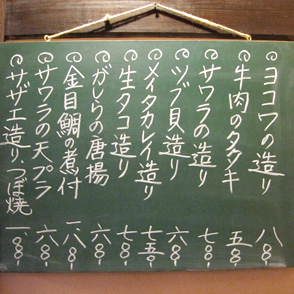 ヨコワの造り 八〇〇-
牛肉のタタキ 五〇〇-
サワラの造り 七〇〇-
ツブ貝造り 六〇〇-
メイタカレイ造り 七五〇-
生タコ造り 七〇〇-
がしらの唐揚 六〇〇-
金目鯛の煮付 一八〇〇-
サワラの天プラ 六〇〇-
サザエ造り、つぼ焼 一、〇〇〇-